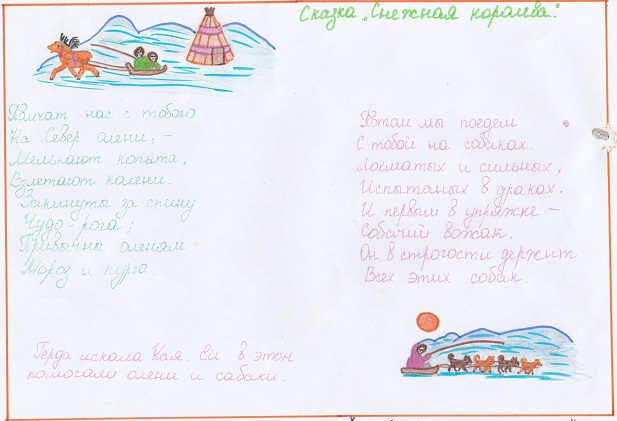 Сказка „Снежная королева."
Помчат нас с тобою
На Север олени, –
Мелькают копыта,
Взлетают колени.
Закинуты за спину
Чудо-рога;
Привычны оленям
Мороз и пурга.
Потом мы поедем
С тобой на собаках.
Лохматых и сильных,
Испытаных в драках.
И первым в упряжке –
Собачий вожак.
Он в строгости держит
Всех этих собак.
Герда искала Кая. Ей в этом
помогали олени и сабаки.